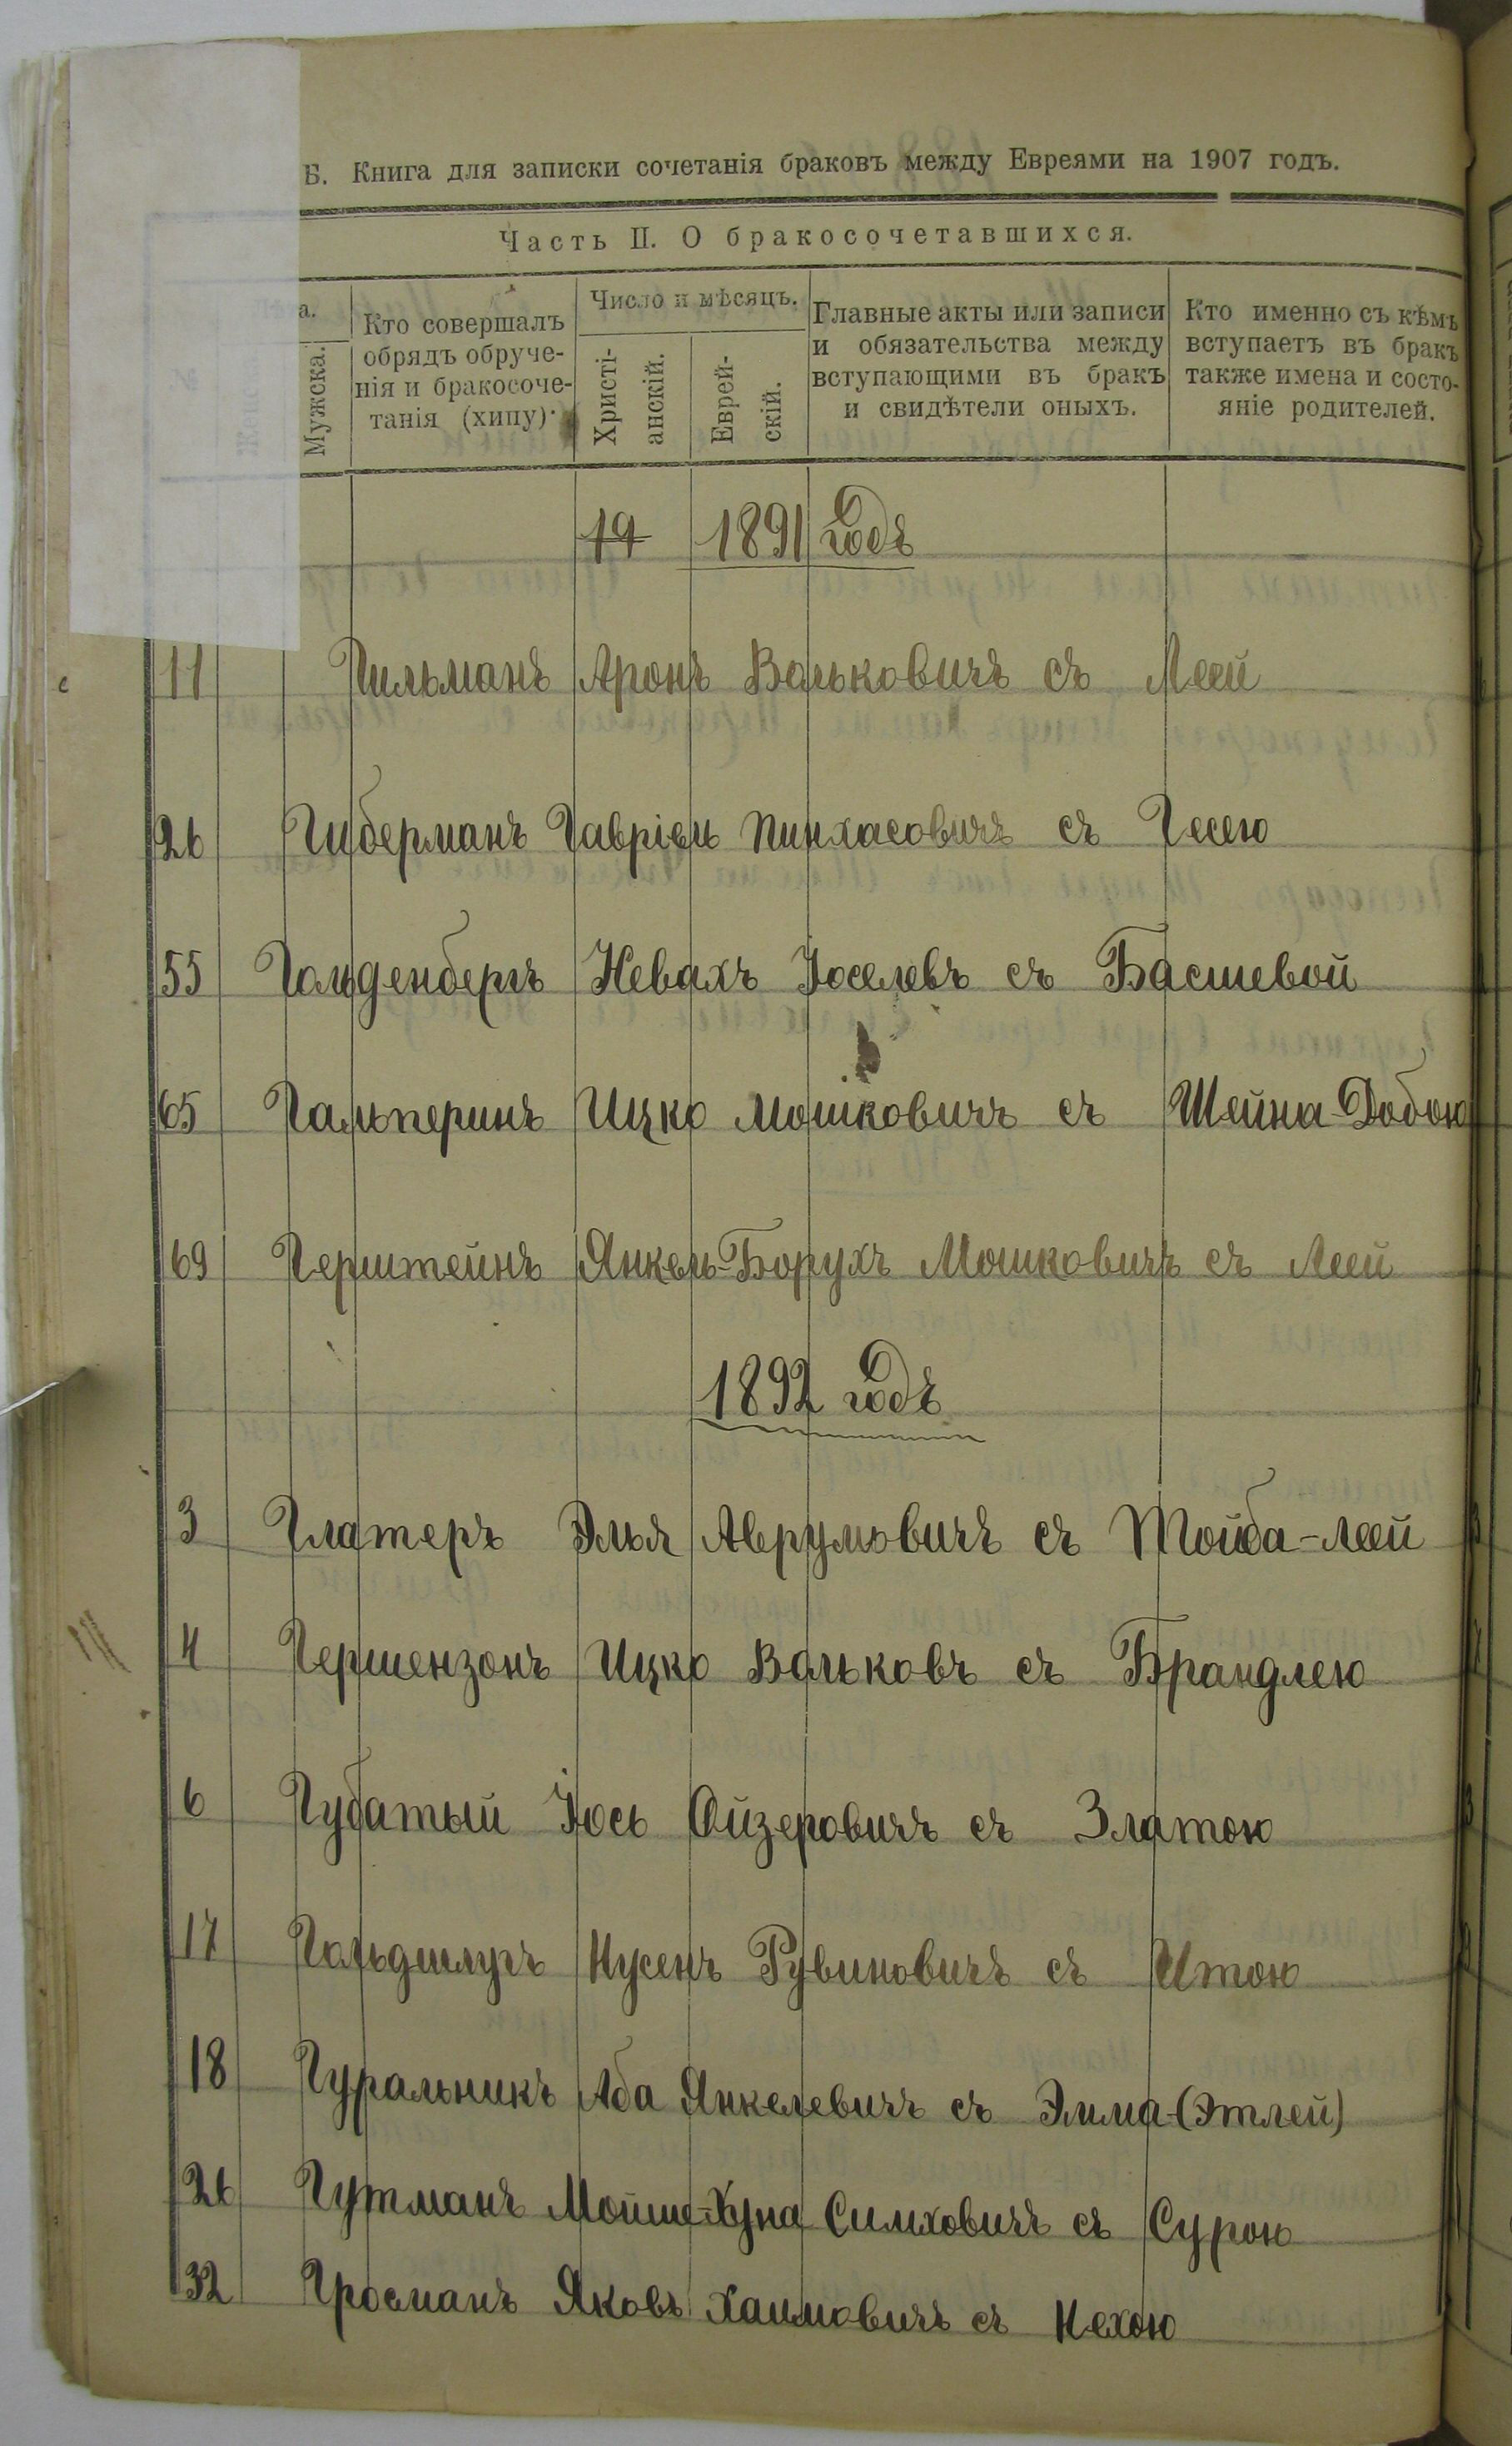 Б. Книга для записки сочетанія браковъ между Евреями на 1907 годъ.
Часть II. О бракосочетавшихся.
а.
Мужска.
Кто совершалъ
обрядъ обруче-
нія и бракосоче-
танія (хипу).
Число и мѣсяцъ.
Христі-
анскій.
Еврей-
скій.
Главные акты или записи
и обязательства между
вступающими въ бракъ
и свидѣтели оныхъ.
Кто именно съ кѣмъ
вступаетъ въ бракъ
также имена и состо-
яніе родителей.
19 1891 годъ
11 Гильманъ Аронъ Вольковичъ съ Леей
26 Гиберманъ Гавріель Пинхасовичъ съ Гесею
55 Гольденбергъ Невахъ Іоселевъ съ Басшевой
65 Гальперинъ Ицко Мошковичъ съ Шейна-Добою
69 Герштейнъ Янкель-Борухъ Мошковичъ съ Леей
1892 годъ
3 Глатеръ Элья Аврумовичъ съ Тойба-Леей
4 Гершензонъ Ицко Вольковъ съ Брандлею
6 Губатый Іось Ойзеровичъ съ Златою
17 Гольдшлугъ Нусенъ Рувиновичъ съ Итою
18 Гуральникъ Аба Янкелевичъ съ Элма-(Этлей)
26 Гутманъ Мойше-Хуна Симховичъ съ Сурою
32 Гросманъ Яковъ Хаимовичъ съ Нехою